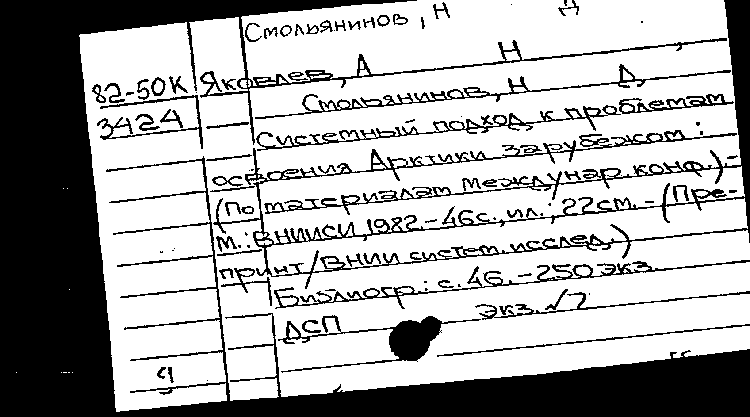 Смольянинов, Н Д
82-50К Яковлев, А Н
3424 Смольянинов, Н Д
Системный подход к проблемам
освоения Арктики зарубежом:
(По материалам междунар. конф.)-
М.: ВНИИСИ, 1982.-46с., ил.; 22см.-(Пре-
принт/ВНИИ систем. исслед.)
Библиогр.: с. 46. - 250 экз.
ДСП экз. √2